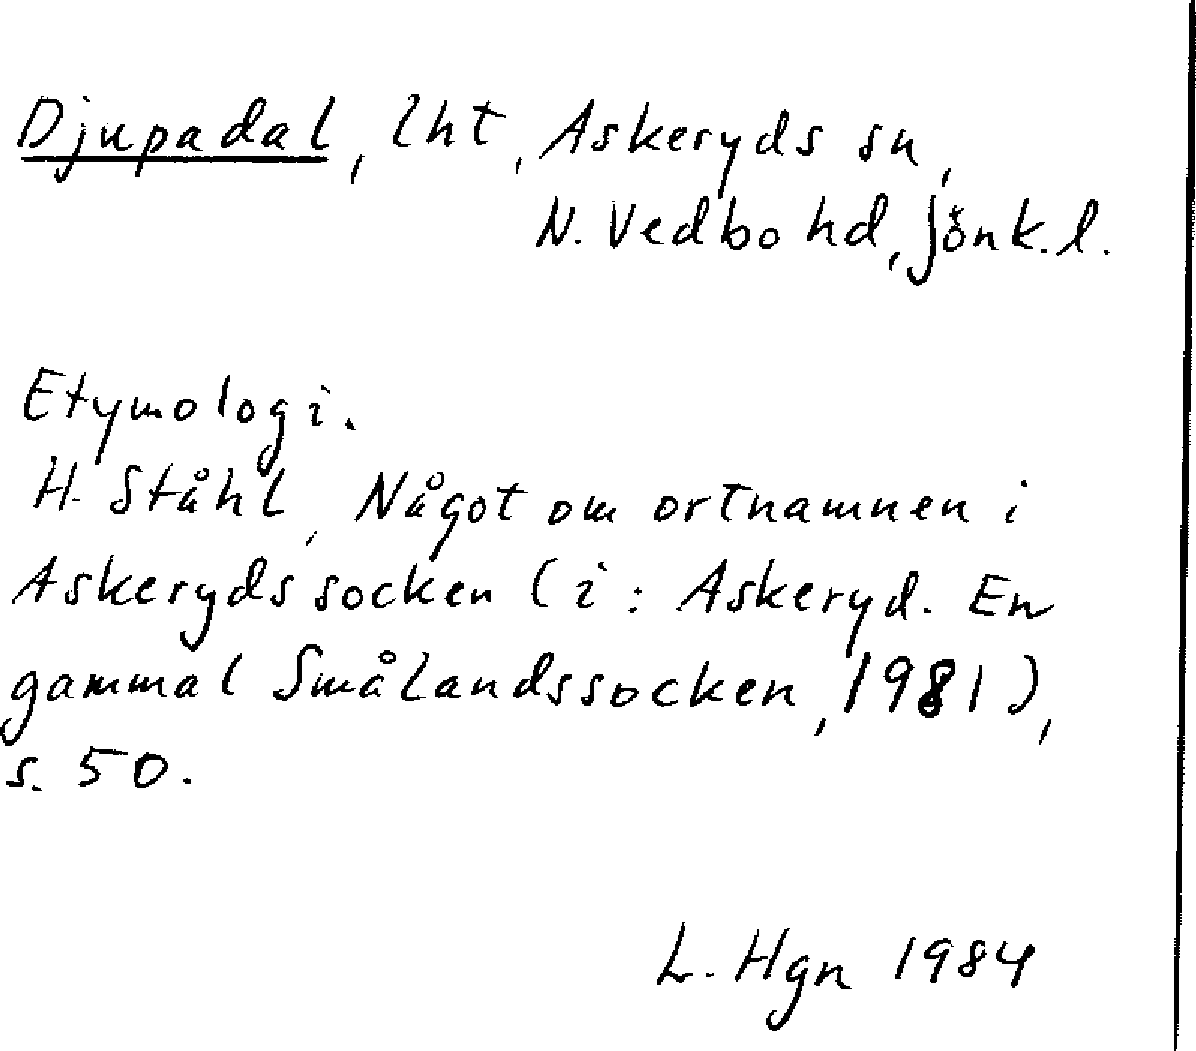 Djupadal, lht, Askeryds sn,
N. Vedbo hd, Jönk.l.
Etymologi.
H. Ståhl, Något om ortnamnen i
Askeryds socken (i: Askeryd. En
gammal Smålandssocken, 1981),
s. 50.
L. Hgn 1984